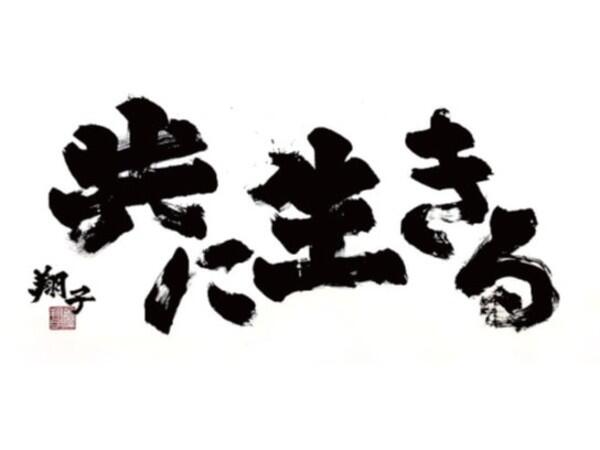 共に生きる
翔子